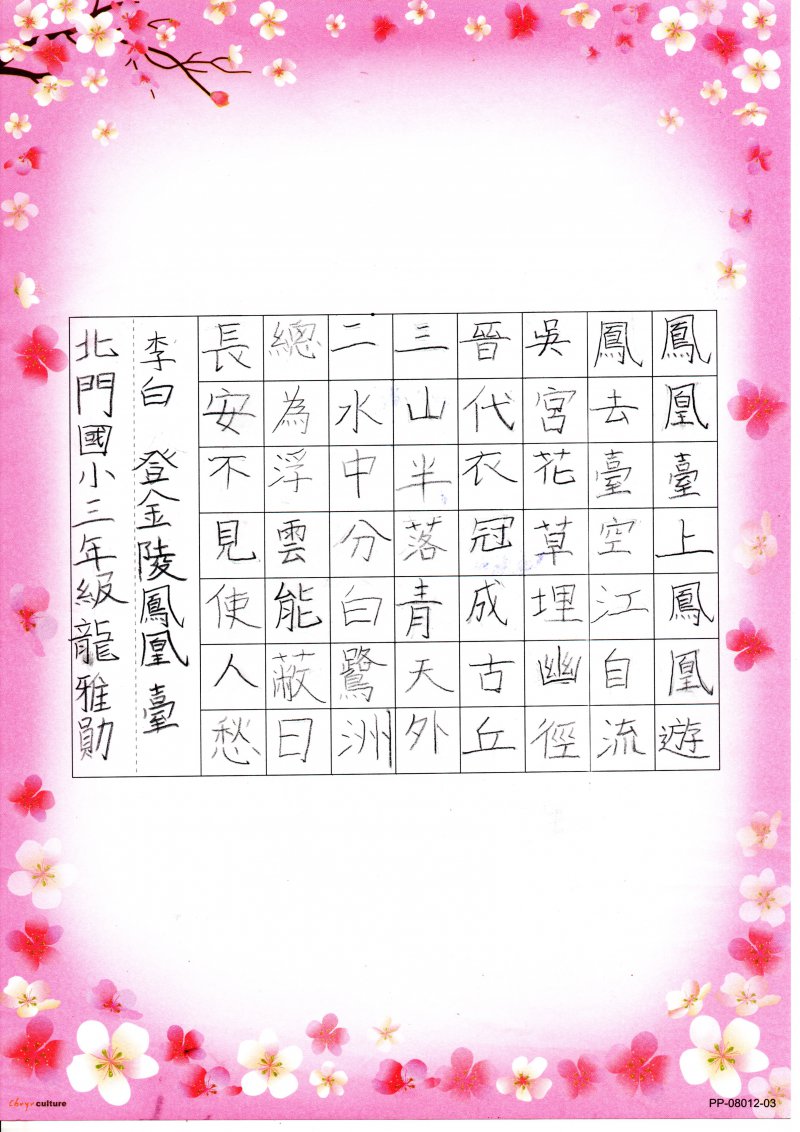 鳳凰臺上鳳凰遊
鳳去臺空江自流
吳宮花草埋幽徑
晉代衣冠成古丘
三山半落青天外
二水中分白鷺洲
總為浮雲能蔽日
長安不見使人愁
李白 登金陵鳳凰臺
北門國小三年級龍雅勛
culture
PP-08012-03